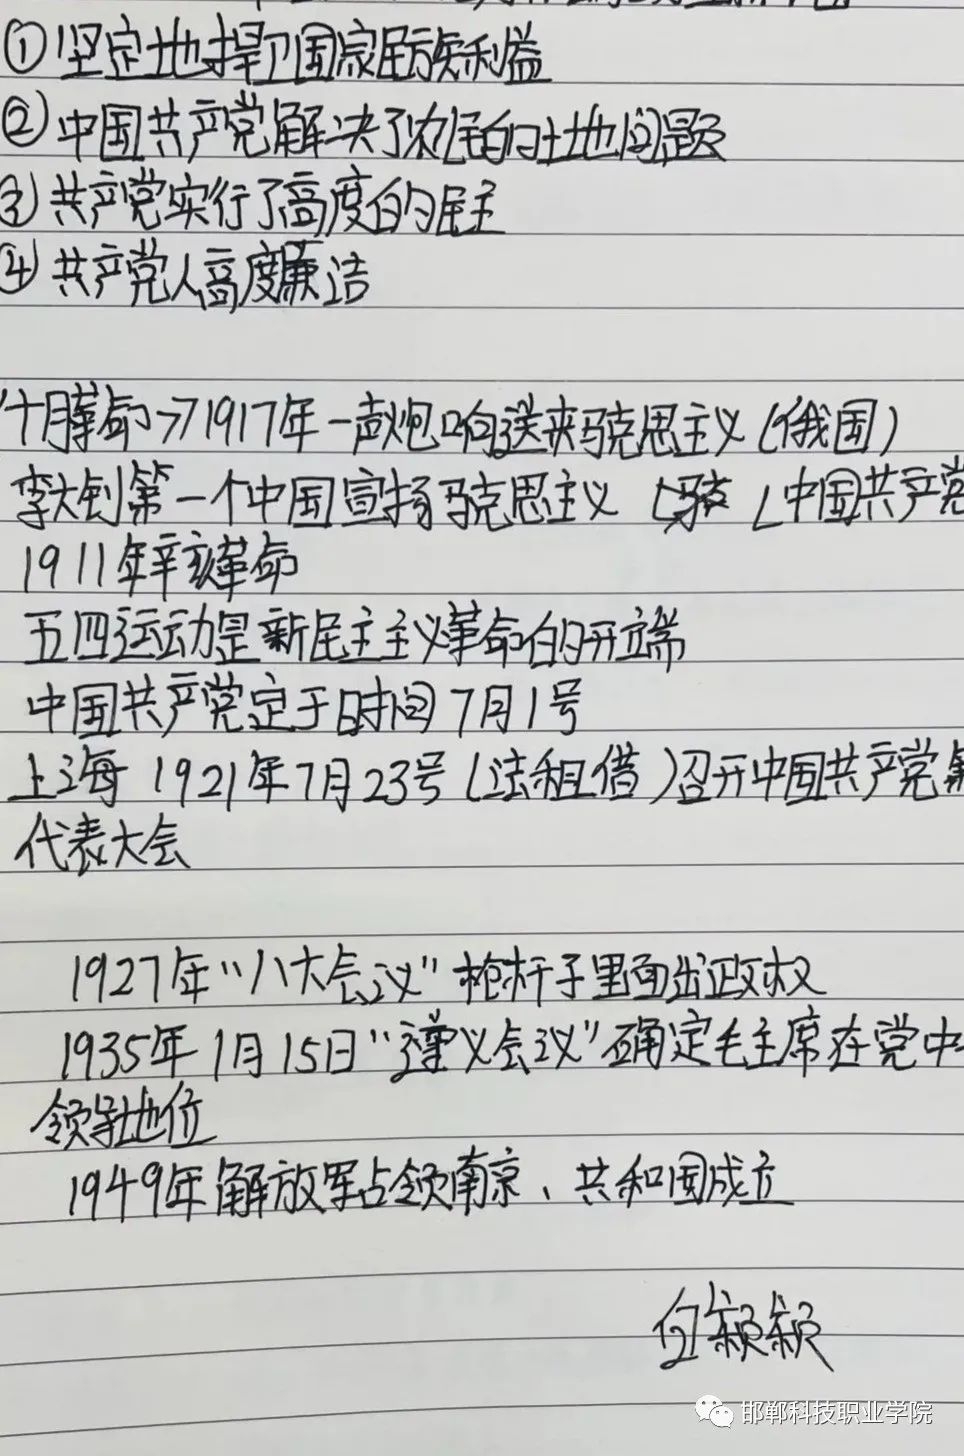 ①坚定地捍卫国家民族利益
②中国共产党解决了农民的土地问题
③共产党实行了高度的民主
④共产党人高度廉洁
十月革命→1917年一声炮响送来马克思主义(俄国)
李大钊第一个中国宣扬马克思主义 中国共产党
1911年辛亥革命
五四运动是新民主主义革命的开端
中国共产党定于时间7月1号
上海 1921年7月23号(法租借)召开中国共产党第
代表大会
1927年"八大会议"枪杆子里面出政权
1935年1月15日"遵义会议"确定毛主席在党中
领导地位
1949年解放军占领南京、共和国成立
邯郸科技职业学院